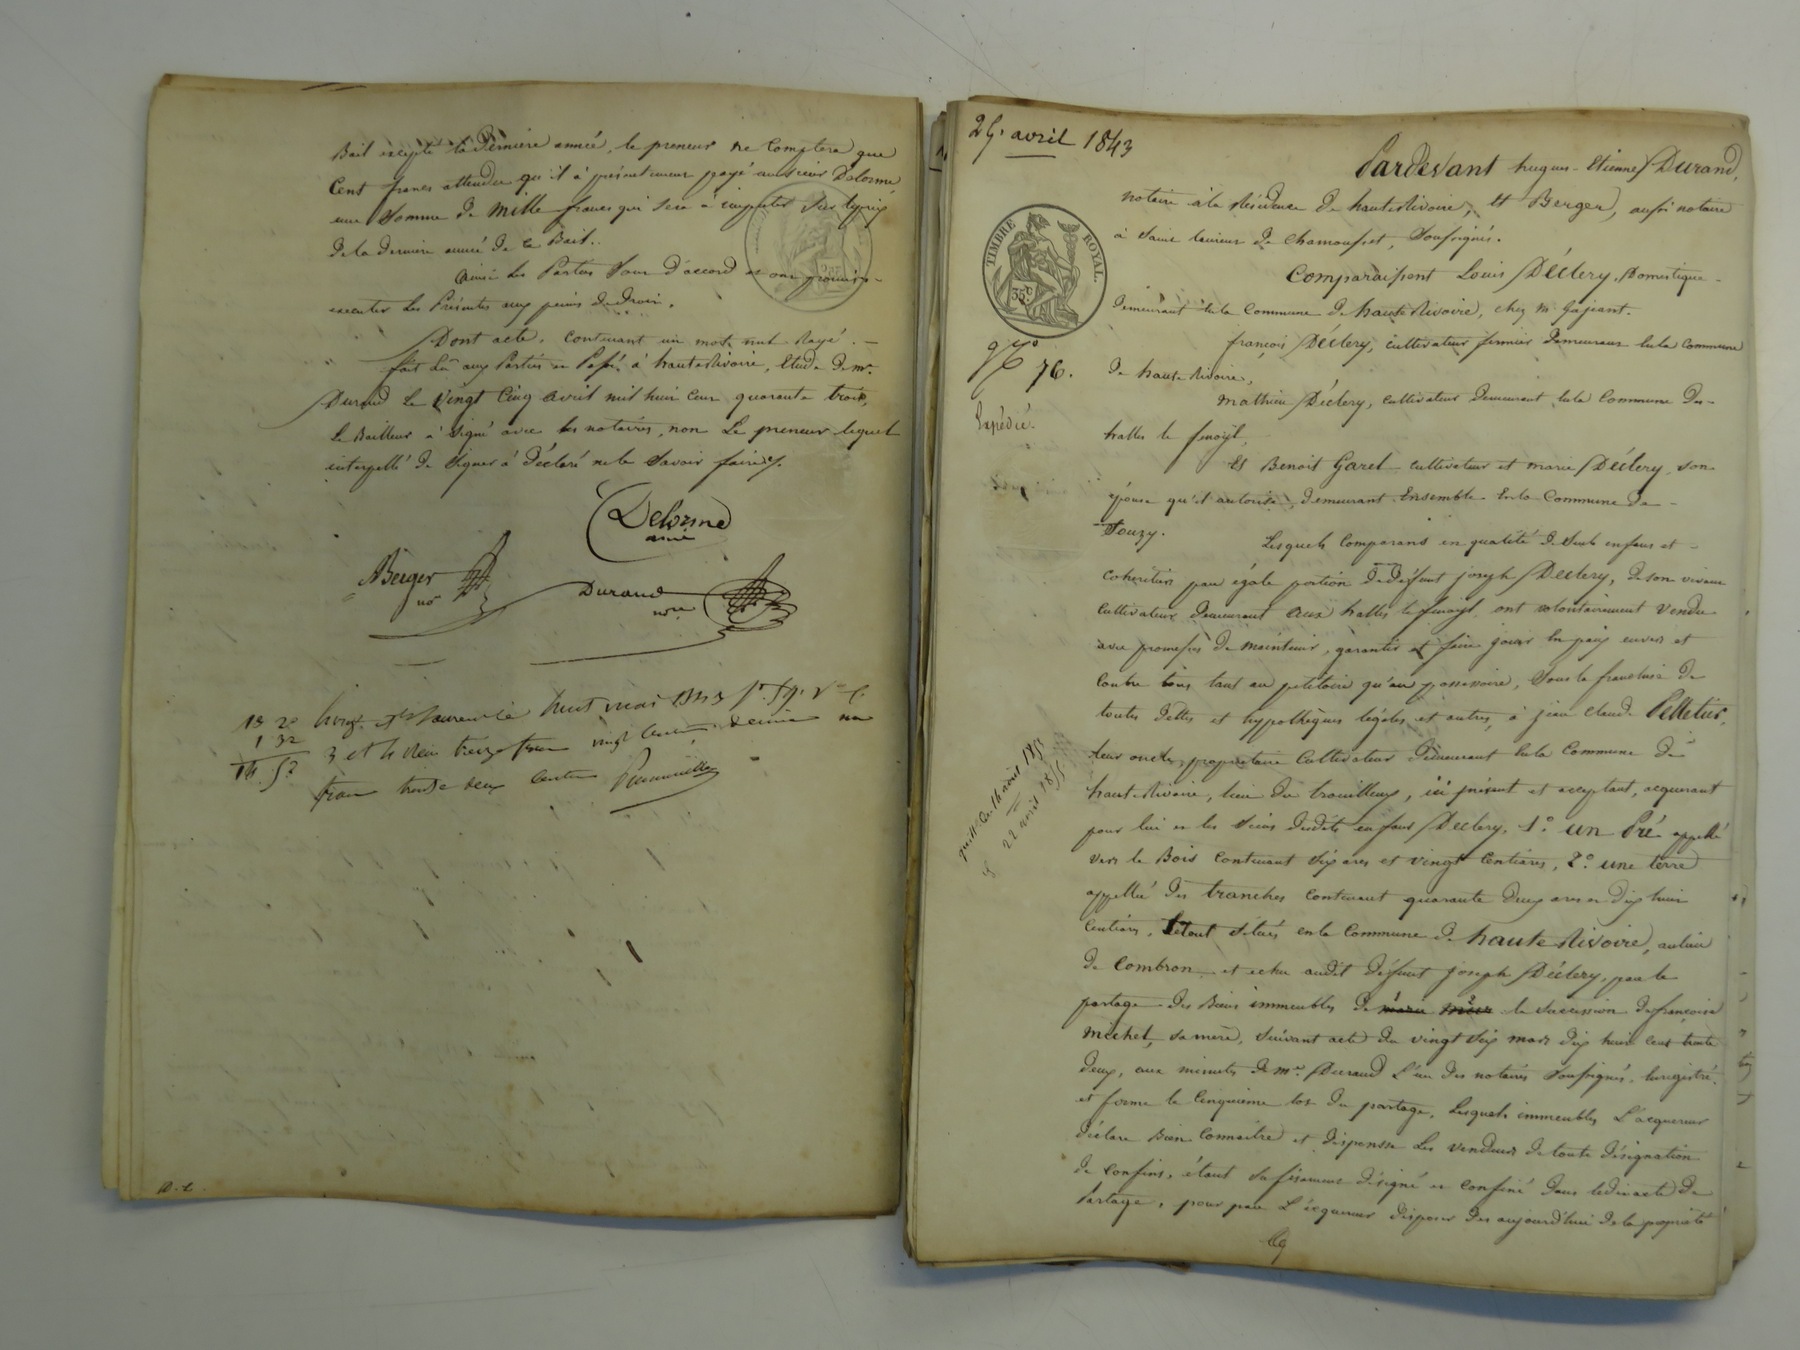 Bail excepté la Derniere année, le preneur ne Comptera que
Cent francs attendu qu'il à présentement payé au sieur Delorme,
une Somme de Mille francs qui sera à imputer sur le prix
de la derniere année de ce Bail..
Ainsi les Parties sont d'accord et ont promis
executer les Présentes aux peines de droit.
Dont acte, Contenant un mot nul Rayé. —
fait Lû aux Parties et Passé à hauteRivoire, Etude de Mr.
Durand Le Vingt Cinq avril mil huit Cent quarante trois,
Le Bailleur à signé avec les notaires, non Le preneur lequel
interpellé de Signer à Déclaré ne le Savoir faire
Delorme
ainé
Berger
no
Durand
nre
13 20
1 32
14. 52
huit mai
3 et treize franc vingt decime
franc trente deux
25. avril 1843
Pardevant hugues-Etienne Durand,
notaire à la Résidence de hauteRivoire, et Berger, aussi notaire
à Saint Laurent de Chamousset, Soussignés.
Comparaissent Louis Déclery, Domestique
TIMBRE ROYAL.
35c
Demeurant en la Commune de hauteRivoire, chez M.
françois Déclery, cultivateur fermier Demeurant en la Commune
No 76.
de haute Rivoire,
Mathieu Déclery, cultivateur Demeurant en la Commune Des
Expédié.
halles le fenoyl,
Et Benoit Garel cultivateur et marie Déclery son
épouse qu'il autorise, demeurant Ensemble En la Commune de
Souzy.
Lesquels Comparans en qualité de Seuls enfans et
Cohéritiers par égale portion de défunt joseph Déclery, de son vivant
cultivateur Demeurant aux halles le fenoyl, ont volontairement vendu
avec promesses de maintenir, garantir et faire jouir en paix envers et
Contre tous tant au petitoire qu'au possessoire, Sous la franchise de
toutes dettes et hypothèques légales et autres, à jean Claude Pelletier,
leur oncle, propriétaire Cultivateur Demeurant en la Commune de
22 avril
haute Rivoire, lieu du trouilleux, ici présent et acceptant, acquerant
pour lui et les Siens desdits enfans Declery, 1.° un Pré appellé
vers le Bois contenant Six ares et vingt Centiares, 2.° une terre
appellée Des tranches Contenant quarante deux ares et dix huit
Centiares. Le tout situés en la Commune de haute Rivoire, au lieu
de Combron et echu audit défunt joseph Déclery, par le
partage des Biens immeubles de la succession de françoise
Michel, sa mère, Suivant acte du vingt six mars dix huit cent trente
deux, aux minutes de Me. Durand L'un des notaires Soussignés, Enregistré.
et forme le Cinquième lot du partage. Lesquels immeubles L'acquereur
déclare Bien Connaître et dispensse Les vendeurs de toute désignation
de Confins, étant Sufisamment désigné et Confiné Dans ledit acte de
Partage, pour par L'acquereur disposer dès aujourd'hui de la propriété